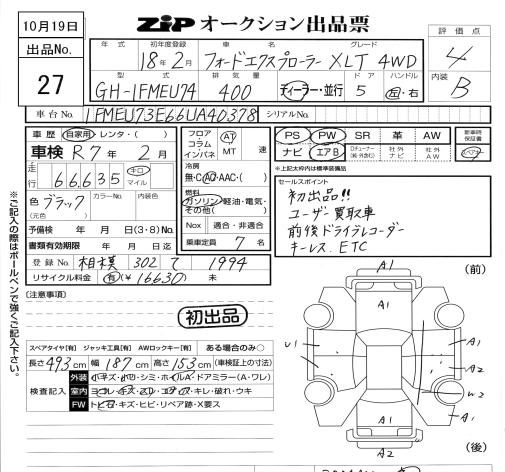 10月19日
ZIP オークション出品票
評価点
4
出品No.
27
年式 初年度登録 車名 グレード
18年2月 フォードエクスプローラー XLT 4WD
型式 排気量 ドア ハンドル
GH-1FMEU74 400 ディーラー・並行 5 左・右
内装
B
車台No. 1FMEU73E66UA40378 シリアルNo.
車歴 自家用・レンタ・( )
車検 R7年2月
走行 66,635 キロ マイル
色 ブラック カラーNo. 内装色
(元色)
予備検 年 月 日(3・8)No.
書類有効期限 年 月 日迄
登録No. 相模 302 て 1994
リサイクル料金 有(¥16630) 未
フロア・コラム・インパネ AT MT 速
冷房
無・C・AC・AAC・( )
燃料
ガソリン・軽油・電気・その他( )
Nox 適合・非適合
乗車定員 7 名
PS PW SR 革 AW 新車時保証書
ナビ エアB 社外ナビ 社外AW
*上記太枠内は標準装備品
セールスポイント
初出品!!
ユーザー買取車
前後ドライブレコーダー
キーレス. ETC
※ご記入の際はボールペンで強くご記入下さい。
(注意事項)
初出品
スペアタイヤ[有] ジャッキ工具[有] AWロックキー[有] ある場合のみ○
長さ 493 cm 幅 187 cm 高さ 183 cm (車検証上の寸法)
検査記入
外装 小キズ・小凹・シミ・ホイルA・ドアミラー(A・ワレ)
室内 ヨゴレ・キズ・スレ・コゲ・アナ・キレ・破れ・ウキ
FW トビ石・キズ・ヒビ・リペア跡・X要ス
(前)
A1
A1
U1
A1
A1
A2
W2
A1
A2
(後)